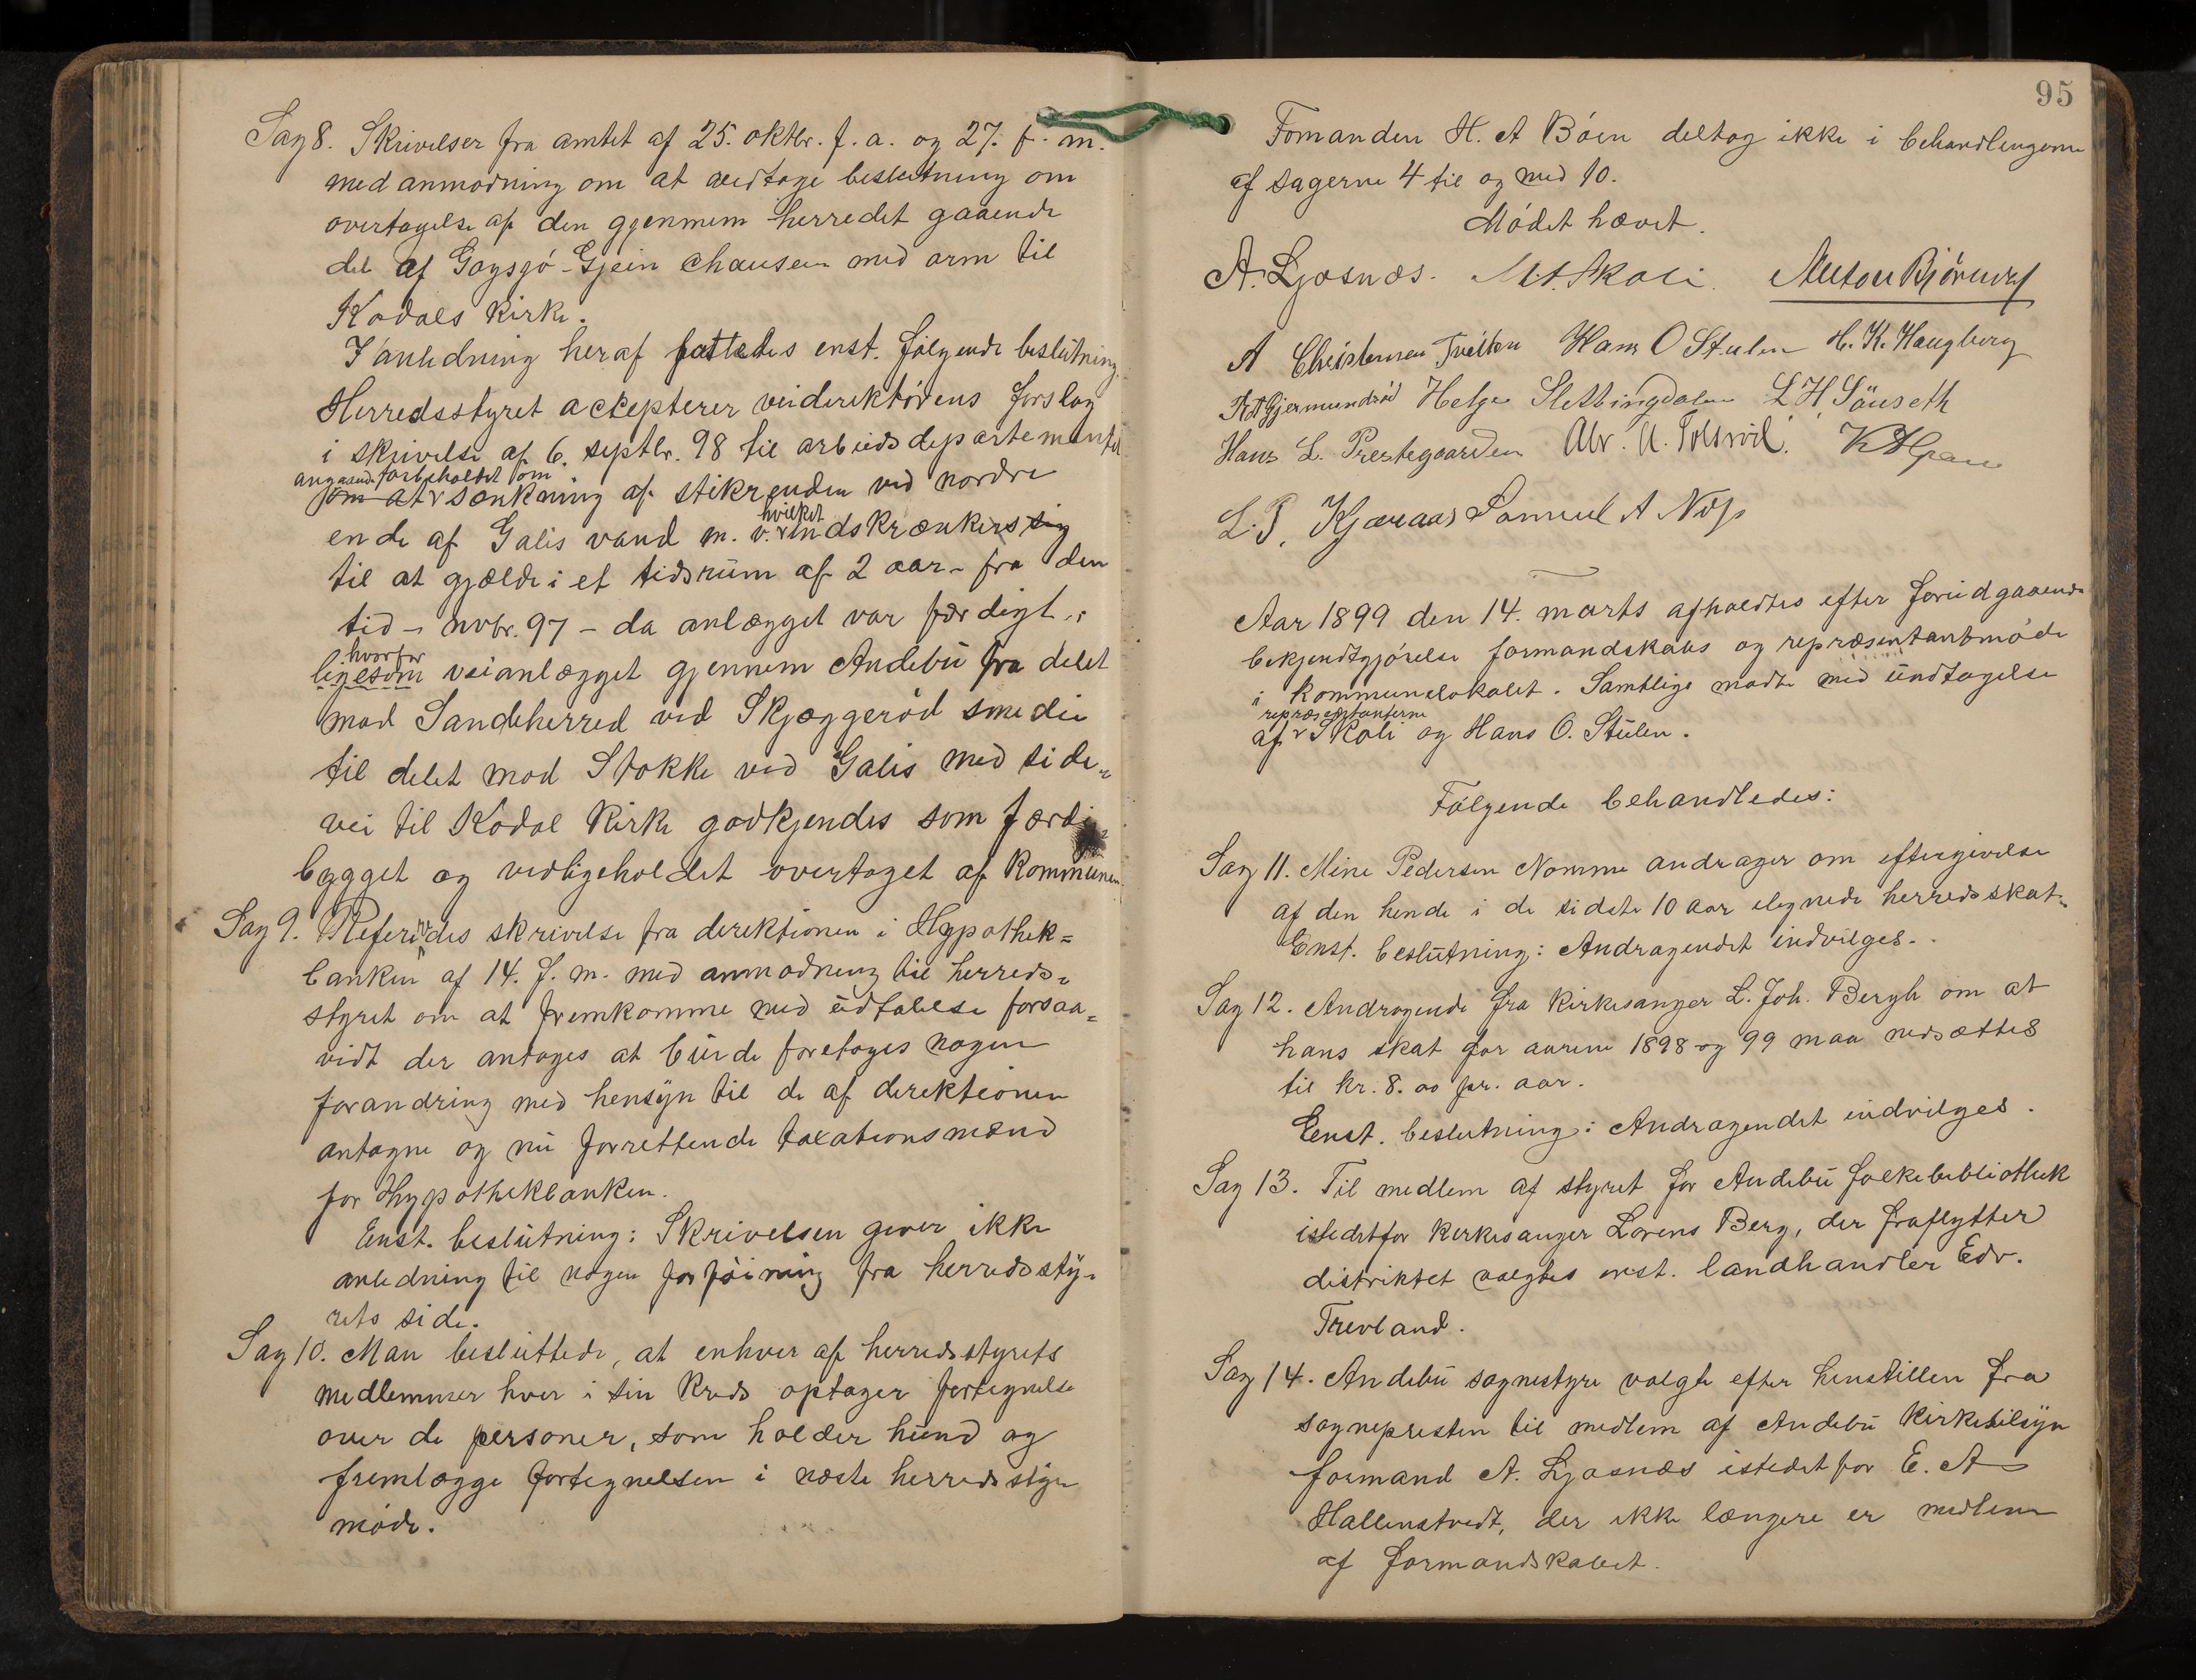 Sag 8. Skrivelser fra amtet af 25. oktbr. f. a. og 27. f. m.
med anmodning om at vedtage beslutning om
overtagelse af den gjennem herredet gaaende
del af Gogsjø-Gjein chauseen med arm til
Kodals kirke.
I anledning heraf fattedes enst. følgende beslutning.
Herredsstyret accepterer veidirektørens forslag
i skrivelse af 6. septbr. 98 til arbeidsdepartementet
angaaende forbeholdet om
om at sænkning af stikrenden ved nordre
ende af Galis vand m. v. hvilket indskrænkes sig
til at gjælde i et tidsrum af 2 aar - fra den
tid - novbr. 97 - da anlægget var færdigt,
hvorfor
ligesom veianlægget gjennem Andebu fra delet
mod Sandeherred ved Skjæggerød smedie
til delet mod Stokke ved Galis med side-
vei til Kodal kirke godkjendes som færdig-
bygget og vedligeholdet overtaget af kommunen
Sag 9. Refereredes skrivelse fra direktionen i Hypothek=
banken af 14. f. m. med anmodning til herreds=
styret om at fremkomme med udtalelse forsaa=
vidt der antages at burde foretages nogen
forandring med hensyn til de af direktionen
antagne og nu forrettende taxationsmænd
for Hypothekbanken.
Enst. beslutning: Skrivelsen giver ikke
anledning til nogen forføining fra herredssty-
rets side.
Sag 10. Man besluttede, at enhver af herredsstyrets
medlemmer hver i sin kreds optager fortegnelse
over de personer, som holder hund og
fremlægge fortegnelsen i næste herredsstyre
møde.
95
Formanden H. A Bøen deltog ikke i behandlingerne
af sagerne 4 til og med 10.
Mødet hævet.
A. Ljøsnæs. M. A. Skoli. Anton Bjørndal
A Christensen Tveiten Hans O Stulen H. K. Haugberg
A Gjermundrød Helge Slettingdalen L H Sönseth
Hans L. Prestegaarden Abr. A. Tolsrød.
L. P. Kjæraas Samuel A Nøs
Aar 1899 den 14. marts afholdtes efter forudgaaende
bekjendtgjørelse formandskabs og repræsentantmøde
i kommunelokalet. Samtlige mødte med undtagelse
repræsentanterne
af Skoli og Hans O. Stulen.
Følgende behandledes:
Sag 11. Mine Pedersen Nomme andrager om eftergivelse
af den hende i de sidste 10 aar ilignede herredsskat.
Enst. beslutning: Andragendet indvilges.
Sag 12. Andragende fra kirkesanger L. Joh. Bergh om at
hans skat for aarene 1898 og 99 maa nedsættes
til kr. 8.00 pr. aar.
Eenst. beslutning: Andragendet indvilges.
Sag 13. Til medlem af styret for Andebu folkebibliothek
istedetfor kirkesanger Lorens Berg, der fraflytter
distriktet valgtes enst. landhandler Edv.
Trevland.
Sag 14. Andebu sognestyre valgte efter henstillen fra
sognepresten til medlem af Andebu kirketilsyn
formand A. Ljøsnæs istedetfor E. A
Hallenstvedt, der ikke længere er medlem
af formandskabet.